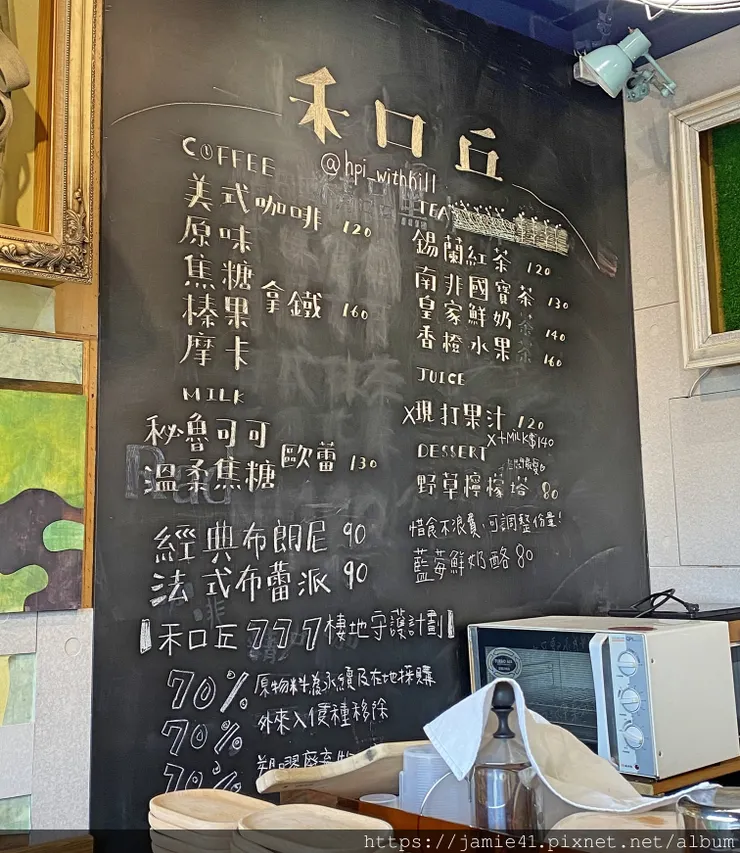 禾口丘
@hpi_withkill
COFFEE
美式咖啡 120
原味
焦糖
榛果 拿鐵 160
摩卡
MILK
秘魯可可
溫柔焦糖 歐蕾 130
經典布朗尼 90
法式布蕾派 90
TEA
錫蘭紅茶 120
南非國寶茶 130
皇家鮮奶茶 140
香橙水果茶 160
JUICE
X現打果汁 120
X+MILK$140
DESSERT
野草檸檬塔 80
惜食不浪費,可調整份量!
藍莓鮮奶酪 80
禾口丘777棲地守護計劃
70% 原物料為永續及在地採購
70% 外來入侵種移除
70% 塑膠廢棄物
https://jamie41.pixnet.net/album